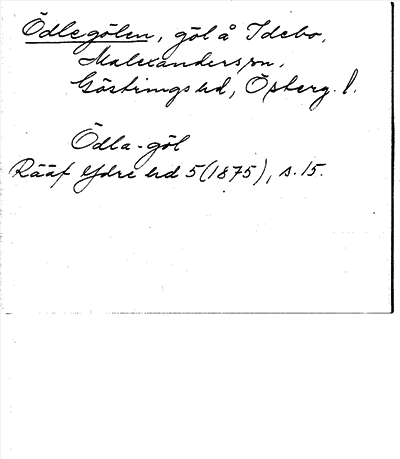 Ödlegölen, göl å Idebo,
Malexanders sn.
Göstrings hd, Österg. l.
Ödla-göl
Rääf Ydre hd 5(1875), s. 15.